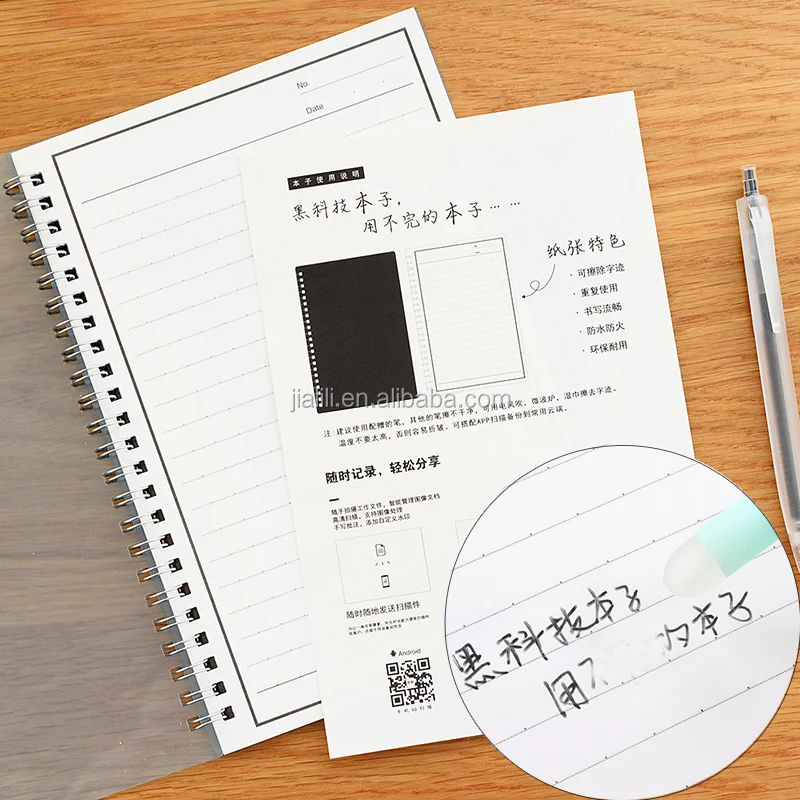 No.
Date
本子使用说明
黑科技本子，
用不完的本子……
纸张特色
·可擦除字迹
·重复使用
·书写流畅
·防水防火
·环保耐用
jiaili.en.alibaba.com
注：建议使用配赠的笔，其他的笔擦不干净，可用电风吹，微波炉，湿巾擦去字迹。
温度不要太高，否则容易折皱，可搭配APP扫描备份到常用云端。
随时记录，轻松分享
随手拍摄工作文件，智能管理图像文档
高清扫描，支持图像处理
手写批注，添加自定义水印
随时随地发送扫描件
Android
手机QQ扫描
黑科技本子
用不 的本子